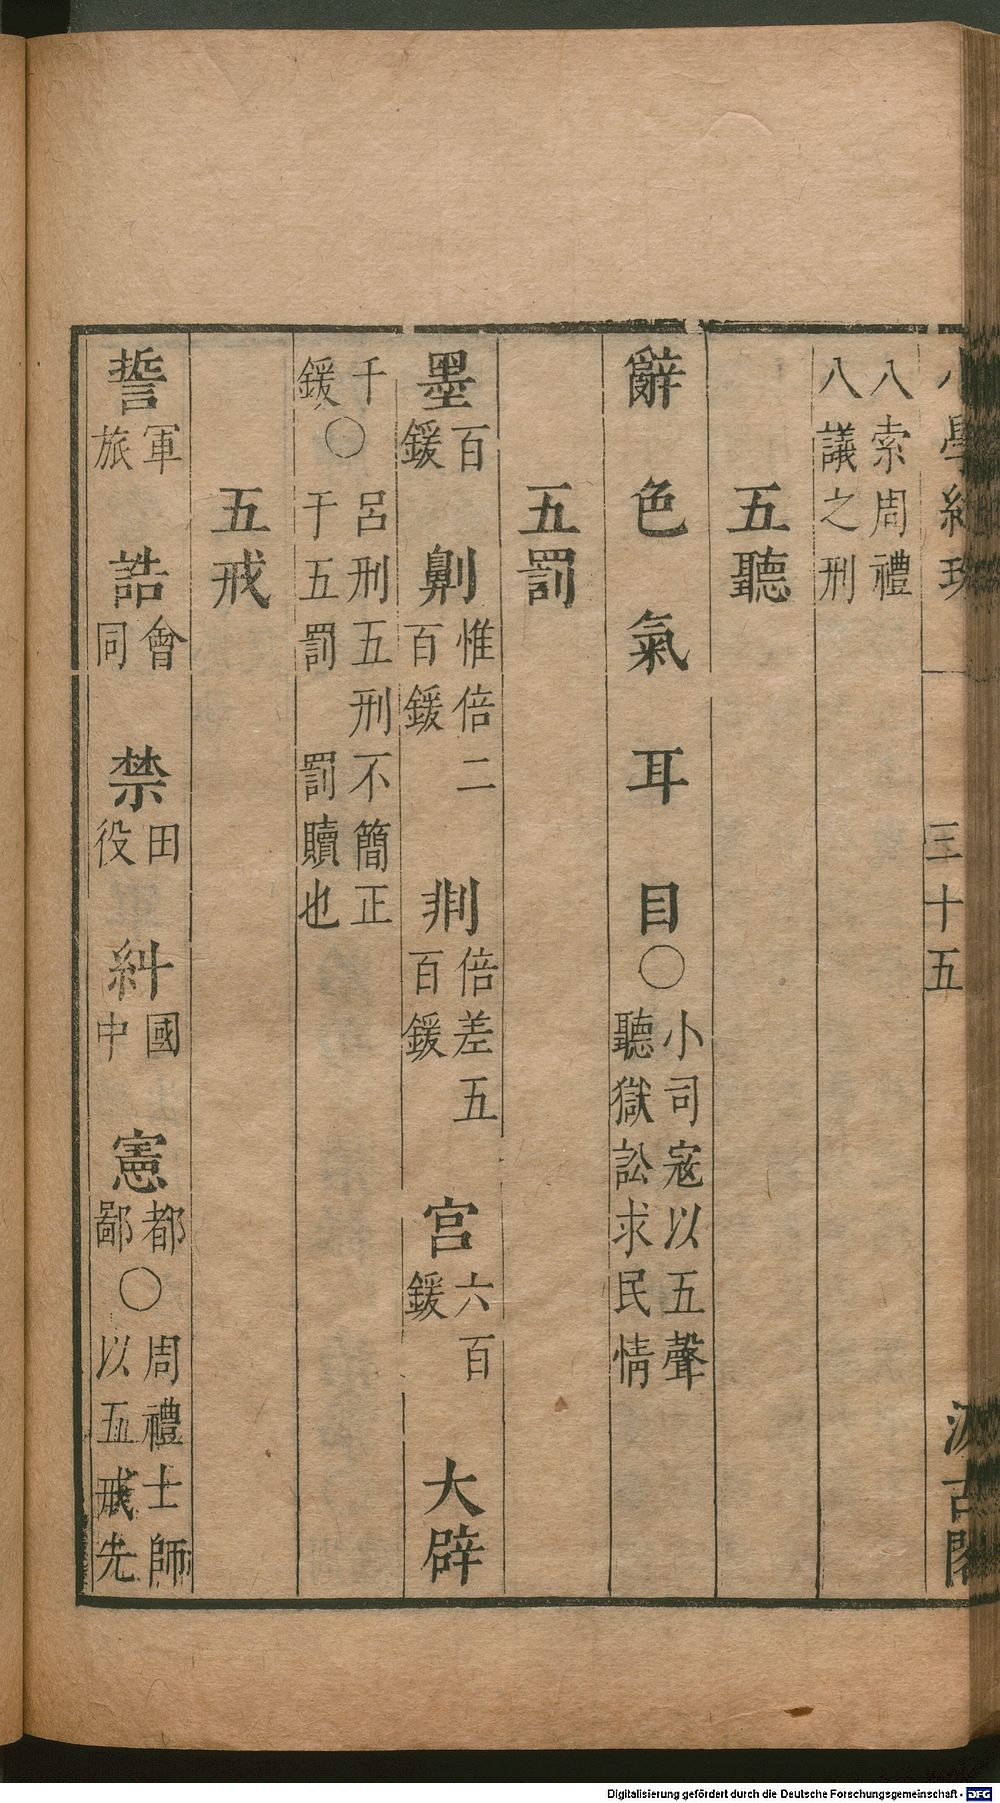 小學紺珠 三十五 汲古閣
八索周禮
八議之刑
五聽
辭 色 氣 耳 目○小司寇以五聲聽獄訟求民情
五罰
墨百鍰 劓惟倍二百鍰 剕倍差五百鍰 宮六百鍰 大辟
千鍰○呂刑五刑不簡正于五罰罰贖也
五戒
誓軍旅 誥會同 禁田役 糾國中 憲都鄙○周禮士師以五戒先
Digitalisierung gefördert durch die Deutsche Forschungsgemeinschaft - DFG